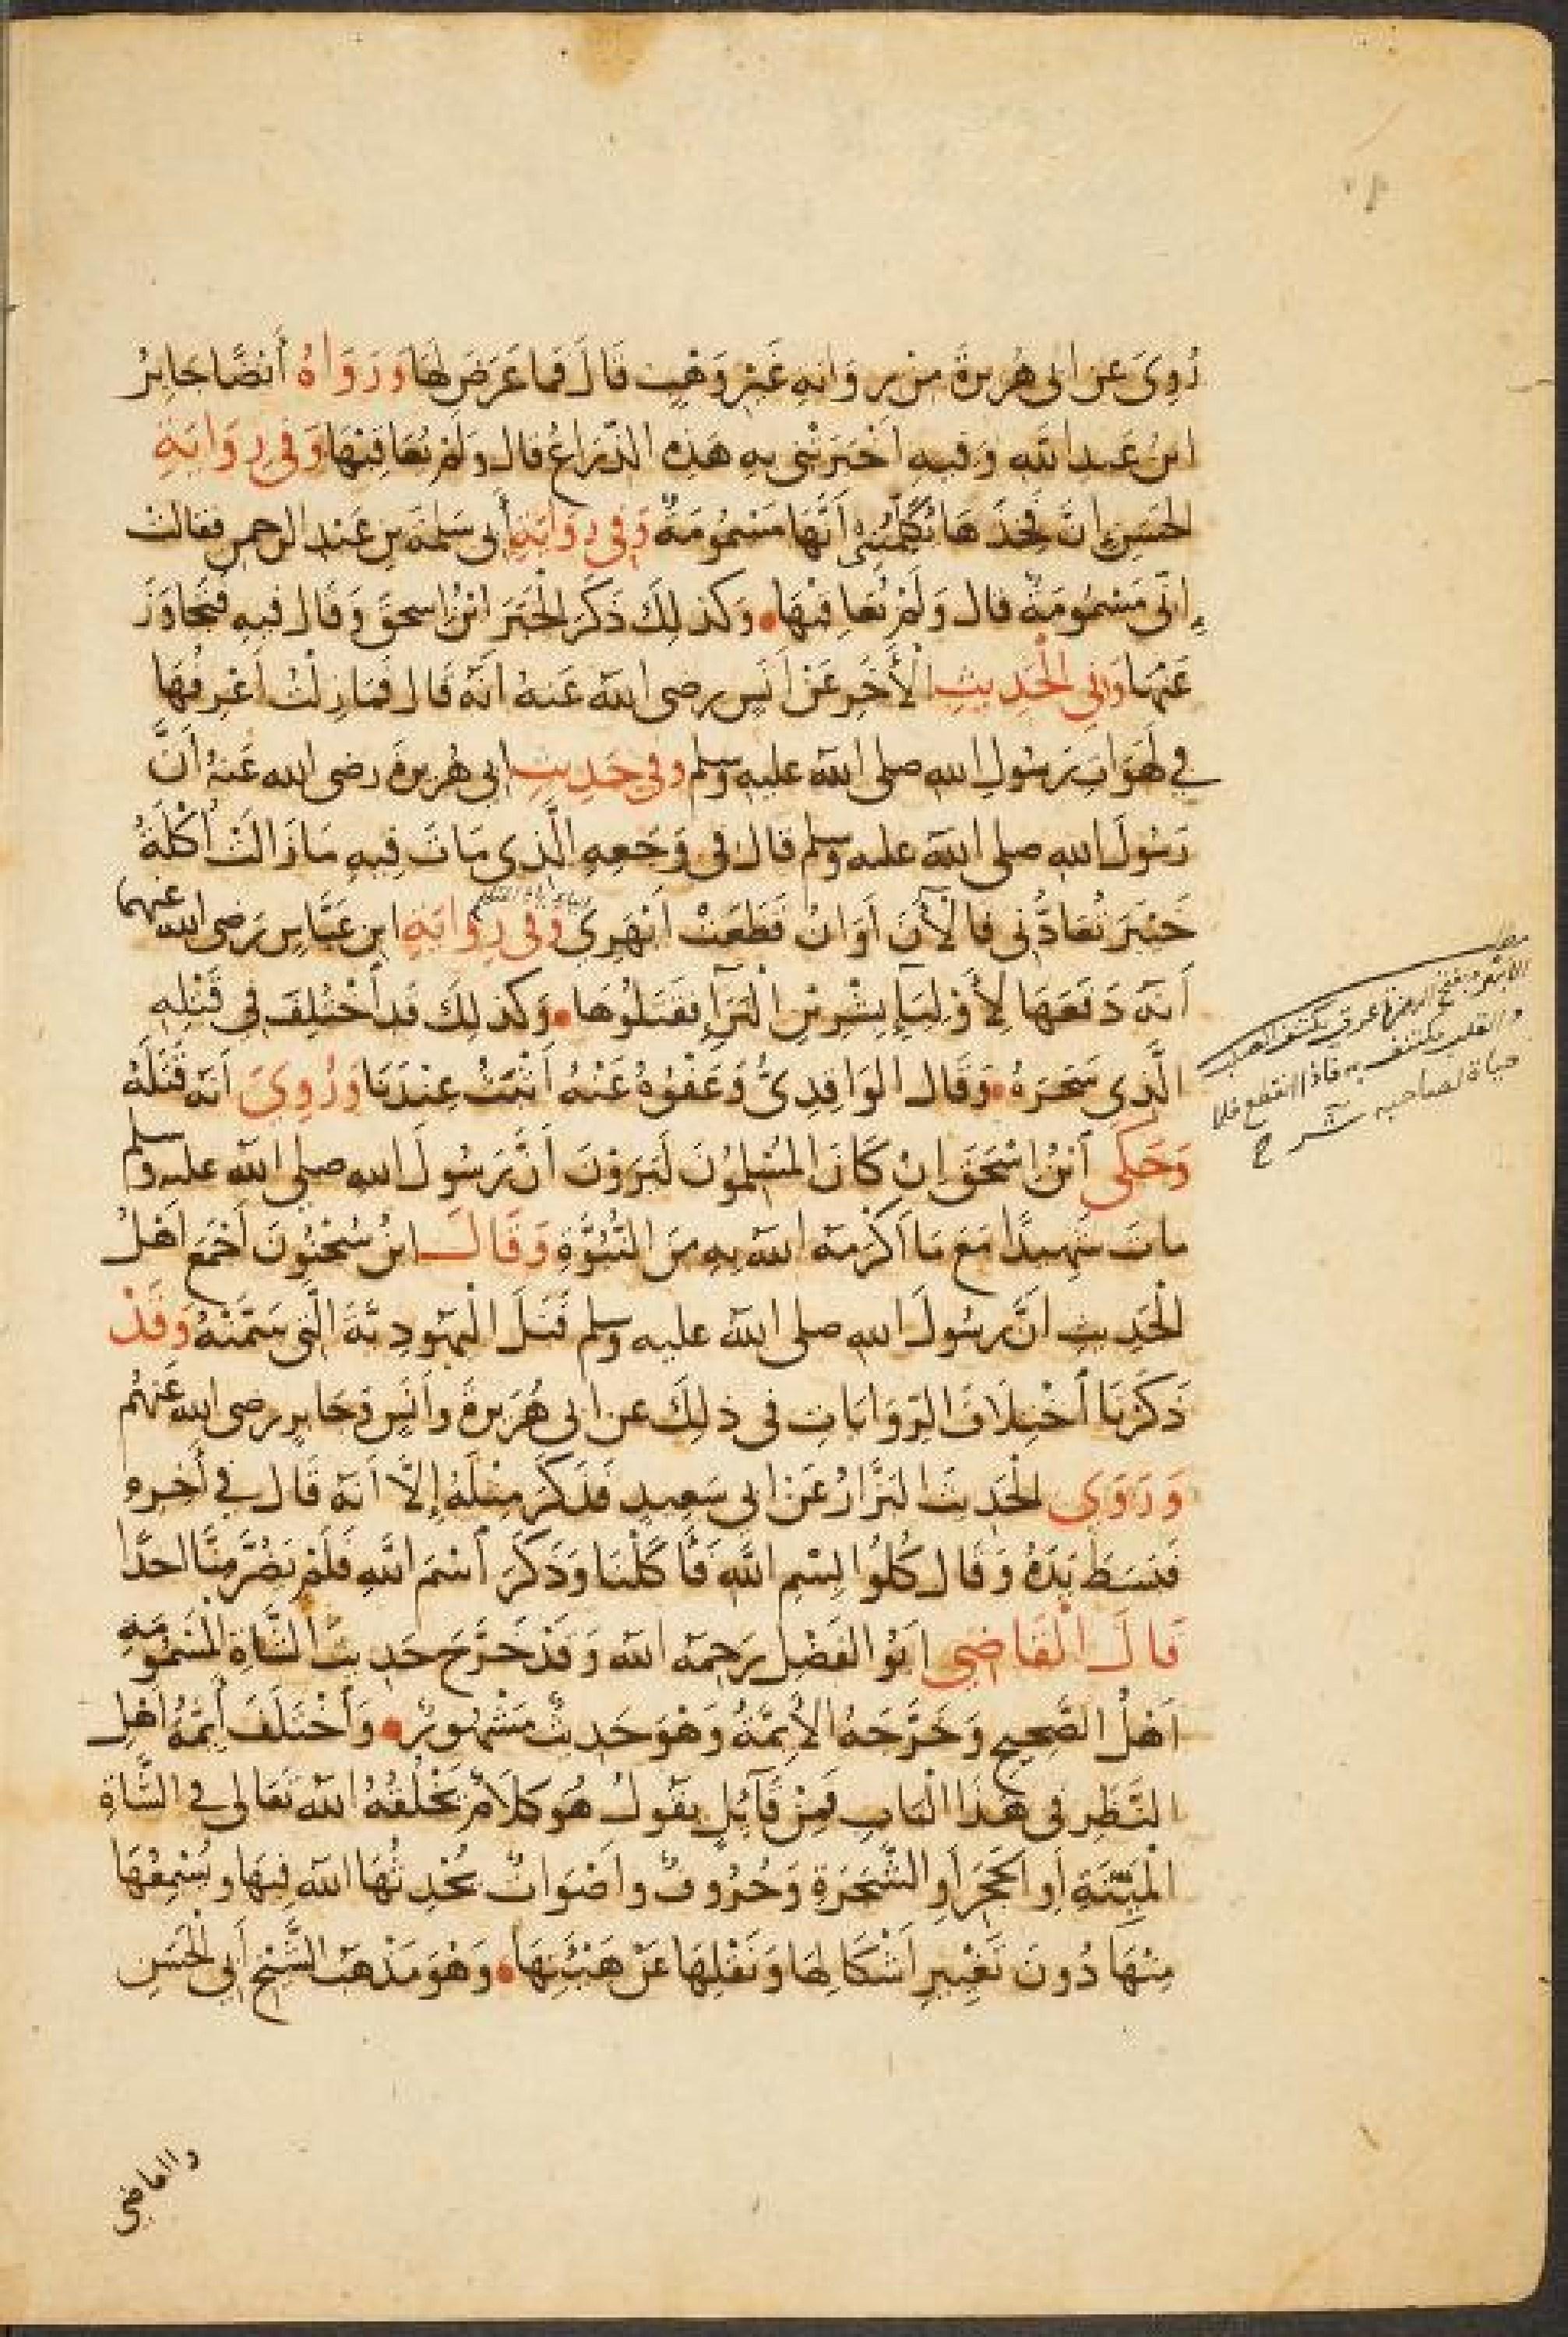 رُوِىَ عن ابى هُرَيرةَ مِنْ رِوَايةِ غَيْرِ وَهْبٍ قَالَ فَمَا عَرَضَ لَهَا وَرَوَاهُ أَيْضًا جَابِرُ
ابنُ عَبدِ اللهِ وَفيهِ اَخْبَرَتْنى بِهِ هَذِهِ الذِّرَاعُ قال وَلَمْ يُعَاقِبْهَا وَفى رِوَايَةِ
الحَسَنِ انَّ فَخِذَهَا تُكَلِّمُنِى اَنَّهَا مَسْمُومَةٌ وَفى رِوَايَةِ أَبى سَلَمَةَ بنِ عَبْدِ الرحمن فقالت
إنّى مَسْمُومَةٌ قال وَلَمْ يُعَاقِبْهَا وَكذلِكَ ذَكَرَ الْخَبَرَ ابْنُ اسحق وَقَال فيهِ فَتَجَاوَزَ
عَنْهَا وَفِي الْحَدِيثِ الْأَخَرِ عَنْ اَنَسٍ رضى الله عَنهُ انَّهُ قَال فَمَا زِلْتُ اَعْرِفُهَا
في لَهَوَاتِ رَسُولِ الله صلى الله عليه وسلم وفي حَدِيثِ ابي هُرَيرةَ رضى الله عَنهُ اَنَّ
رَسُولَ الله صلى الله عليه وسلم قال فى وَجَعِهِ الَّذِى مَاتَ فِيهِ مَا زَالَتْ أكْلَةُ
خَيْبَرَ تُعَادُّنى فَالْأَنَ اَوَانُ قَطَعَتْ اَبْهَرِي وفى رِوَايَةِ ابنِ عَبَّاسٍ رَضى الله عنهما
اَنّهُ دَفَعَهَا لِأَوْلِيَآءِ بِشْرِ بْنِ الْبَرَآءِ فقَتَلُوُهَا وَكذلِكَ قَد اُخْتُلِفَ فِي قَتْلِهِ
الَّذِي سَحَرَهُ وَقَال الوَاقِدِىُّ وَعَفْوُهُ عَنْهُ اَثْبَتُ عِنْدَنَا وَرُوِيَ اَنّهُ قَتَلَهُ
وَحَكَى اَبْنُ اسْحَقَ اِنْ كَانَ المُسْلِمُونَ لَيَرَوْنَ اَنَّ رَسُولَ الله صلى الله عليه وسلم
ماتَ شَهِيدًا مَعَ مَا اَكْرَمَهُ اللهُ بِهِ مِنَ النُّبُوَّةِ وَقَالَ ابنُ سُحْنُونَ اَجْمَعَ اَهْلُ
الْحَدِيثِ انَّ رسُولَ الله صلى الله عليه وسلم قَتَلَ الْيَهُودِيَّةَ الَّتى سَمَّتْهُ وَقَدْ
ذَكَرْنَا اخْتِلَافَ الرِّوَايَاتِ فى ذلِكَ عن ابى هُرَيرةَ وَاَنَسٍ وَجَابِرٍ رضى الله عَنهُم
وَرَوَى الْحَدِيثَ الْبَزَّارُ عَنْ ابى سَعِيدٍ فَذَكَرَ مِثْلَهُ إِلَّا اَنّهُ قَال في أَخِرِهِ
فَبَسَطَ يَدَهُ وَقَال كُلُوا بِسْمِ اللهِ فَأكَلْنَا وَذَكَرَ اَسْمَ اللهِ فَلَمْ تَضُرَّ مِنَّا احَدًا
قَالَ الْقَاضِي ابُو الفَضْل رَحِمَهُ اللهُ وَقَدْ خَرَّجَ حَدِيثَ الشَّاةِ الْمَسْمُومَةِ
اَهْلُ الصَّحِيحِ وَخَرَّجَهُ الأَئِمَّةُ وَهْوَ حَدِيثٌ مَشْهُورٌ وَاَخْتَلَفَ اَئِمَّةُ اَهْلِ
النَّظَرِ فى هذَا الْبَابِ فَمِنْ قَآئِلٍ يقُولُ هُوَ كَلَامٌ يَخْلُقُهُ اللهُ تَعَالى في الشَّاةِ
الْمَيِّتَةِ أَوِ الحَجَرِ أَوِ الشَّجَرَةِ وَحُرُوفٌ وَاَصْوَاتٌ يُحْدِثُهَا اللهُ فِيهَا وَيُسْمِعُهَا
مِنْهَا دُونَ تَغْيِيرِ اَشْكَالِهَا وَنَقْلِهَا عَنْ هَيْئَتِهَا وَهْوَ مَذْهَبُ الشَّيْخِ اَبِي الْحَسَنِ
الابهر بفتح الهمزة عرق يكتنف الصلب
والقلب يكتنف به فاذا انقطع فلا
حياة لصاحبه شرح